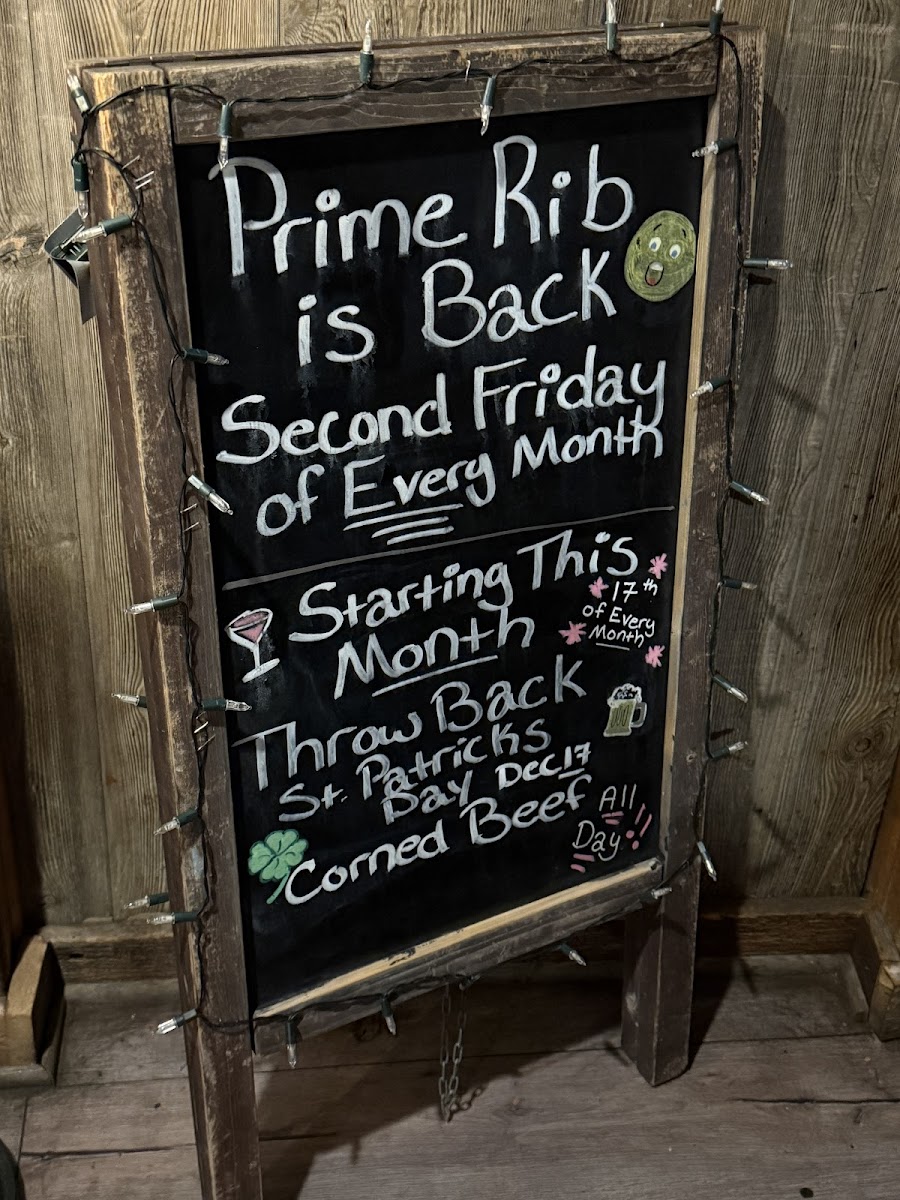 Prime Rib
is Back
Second Friday
of Every Month
Starting This
Month
17th
of Every
Month
Throw Back
St. Patricks
Day Dec 17
Corned Beef
All
Day!!